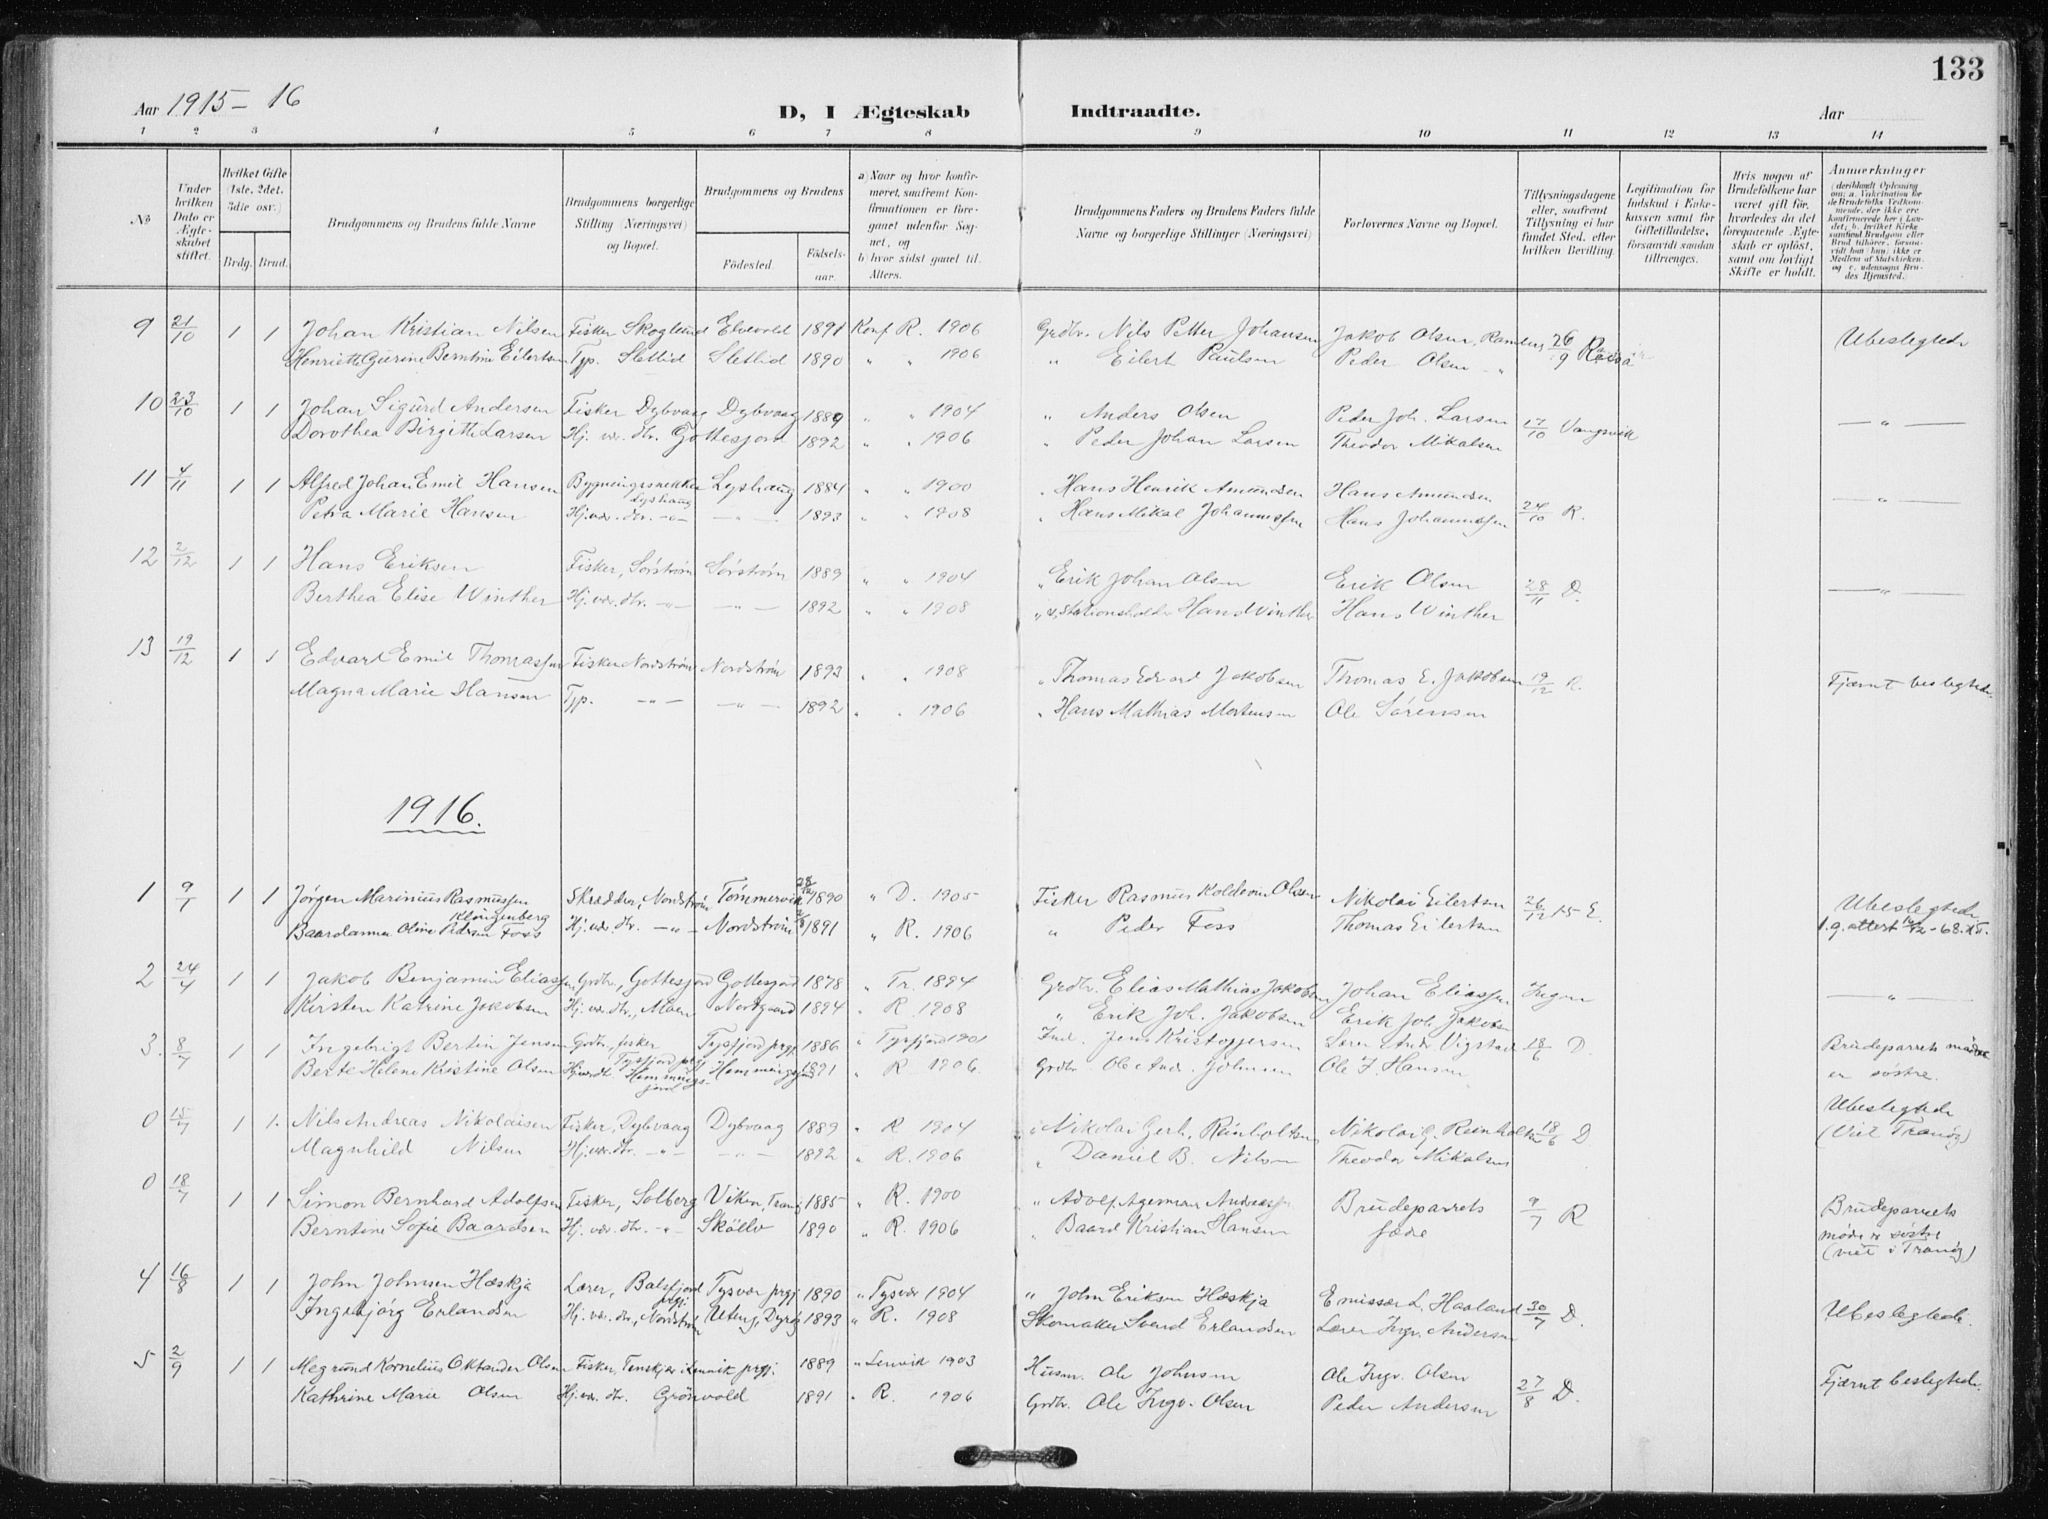 133
Aar 1915-16 D, I Ægteskab Indtraadte. Aar
1 2 3 4 5 6 7 8 9 10 11 12 13 14
No
Under hvilken Dato er Ægteskabet stiftet.
Hvilket Gifte (1ste, 2det, 3die osv.)
Brdg. Brud.
Brudgommens og Brudens fulde Navne
Brudgommens borgerlige Stilling (Næringsvei) og Bopæl.
Brudgommens og Brudens
Födested. Födselsaar.
a) Naar og hvor konfirmeret, saafremt Konfirmationen er foregaaet udenfor Sognet, og
b) hvor sidst gaaet til Alters.
Brudgommens Faders og Brudens Faders fulde Navne og borgerlige Stillinger (Næringsvei)
Forlovernes Navne og Bopæl.
Tillysningsdagene eller, saafremt Tillysning ei har fundet Sted, efter hvilken Bevilling.
Legitimation for Indskud i Enkekassen samt for Giftetilladelse, forsaavidt saadan tiltrænges.
Hvis nogen af Brudefolkene har været gift för, hvorledes da det foregaaende Ægteskab er oplöst, samt om lovligt Skifte er holdt.
Anmerkninger
(deriblandt Oplysning om: a. Vakcination for de Brudefolks Vedkommende, der ikke ere konfirmerede her i Landet; b. hvilket Kirkesamfund Brudgom eller Brud tilhörer, forsaavidt han/hun ikke er Medlem af Statskirken, og c. udensogns Brudes Hjemsted.
9 21/10 1 1 Johan Kristian Nilsen Fisker Skoglund Elvevold 1891 Konf R. 1906 Grdbr. Nils Petter Johansen Jakob Olsen, Ramberg 26/9 Ubeslegtede
Henriette Gurine Berntine Eilertsen Typ. Sletlid Sletlid 1890 " " 1906 " Eilert Paulsen Peder Olsen "
10 23/10 1 1 Johan Sigurd Andersen Fisker Dybvaag Dybvaag 1889 " " 1904 " Anders Olsen Peder Joh. Larsen 17/10 Vangsvik — " —
Dorothea Birgitte Larsen Hj. vær. dtr. Gottesjord 1892 " " 1906 " Peder Johan Larsen Theodor Mikalsen
11 4/11 1 1 Alfred Johan Emil Hansen Bygningssnekker Lyshaug Lyshaug 1884 " " 1900 " Hans Henrik Amundsen Hans Amundsen 24/10 R. — " —
Petra Marie Hansen Hj. vær. dtr. -"- -"- 1893 " " 1908 " Hans Mikal Johannessen Hans Johannessen
12 2/12 1 1 Hans Eriksen Fisker, Sörströn Sörströn 1889 " " 1904 " Erik Johan Olsen Erik Olsen 28/11 D. — " —
Berthea Elise Winther Hj. vær. dtr. -"- -"- 1892 " " 1908 " Stationsholder Hans Winther Hans Winther
13 19/12 1 1 Edvart Emil Thomassen Fisker Nordströn Nordströn 1893 " " 1908 " Thomas Edvard Jakobsen Thomas E. Jakobsen 19/12 R. Fjærnt beslegtede
Magna Marie Hansen Typ. -"- -"- 1892 " " 1906 " Hans Mathias Mortensen Ole Sörensen
1916.
1 9/1 1 1 Jörgen Marinius Rasmussen Klingenberg Skrædder, Nordströn Tömmervik 28/12 1890 " D. 1905 Fisker Rasmus Koldevin Olsen Nikolai Eilertsen 26/12 15 E. Ubeslegtede
Baardanna Oline Pedersen Foss Hj. vær. dtr. -"- Nordströn 1891 " R. 1906 " Peder Foss Thomas Eilertsen
2 24/4 1 1 Jakob Benjamin Eliassen Grdbr., Gottesjord Gottesjord 1878 " Tr. 1894 Grdbr. Elias Mathias Jakobsen Johan Eliassen Ingen — " —
Kirsten Katrine Jakobsen Hj. vær. dtr., Moen Nordgaard 1894 " R. 1908 " Erik Joh. Jakobsen Erik Joh. Jakobsen
3. 8/7 1 1 Ingebrigt Bertin Jensen Grdbr., fisker Tysfjord prgj. Tysfjord prgj. 1886 " Tysfjord 1901 Ind. Jens Kristoffersen Lærer Andr. Vigstad 18/6 D. Brudeparrets mødre
er søstre.
Berte Helene Kristine Olsen Hj. vær. dtr. Hemmingsjord Hemmingsjord 1891 " R. 1906. Grdbr. Ole Andr. Johnsen Ole J. Hansen
0 15/7 1 1. Nils Andreas Nikolaisen Fisker, Dybvaag Dybvaag 1889 " R 1904 " Nikolai Gerh. Reinholtsen Nikolai G. Reinholtsen 18/6 D Ubeslegtede
(Viet Tranöy)
Magnhild Nilsen Hj. vær. dtr. -"- -"- 1892 " R. 1906 " Daniel B. Nilsen Theodor Mikalsen
0 18/7 1 1 Simon Bernhard Adolfsen Fisker, Solberg Viken, Tranöy 1885 " R. 1900 " Adolf Andreassen Brudeparrets 9/7 R Brudeparrets
mødre er søstre
(viet i Tranöy)
Berntine Sofie Baardsen Hj. vær. dtr. -"- Sköllv 1890 " R. 1906 " Baard Kristian Hansen fædre
4 16/8 1 1 John Johnsen Hæskja Lærer, Balsfjord prgj. Tysvær prgj. 1890 " Tysvær 1904 " John Eriksen Hæskja Emissær L. Haaland 30/7 D. Ubeslegtede.
Ingebjörg Erlandsen Hj. vær. dtr., Nordströn Dyröy 1893 " R. 1908 Skomaker Svend Erlandsen Lærer Ingv. Andersen
5 2/9 1 1 Megrund Kornelius Oktander Olsen Fisker, Tenskjær i Lenvik prgj. 1889 " Lenvik 1903 Husm. Ole Johnsen Ole Ingv. Olsen 27/8 D. Fjærnt beslegtede
Kathrine Marie Olsen Hj. vær. dtr. Grönvold 1891 " R. 1906 Grdbr. Ole Ingv. Olsen Peder Andersen